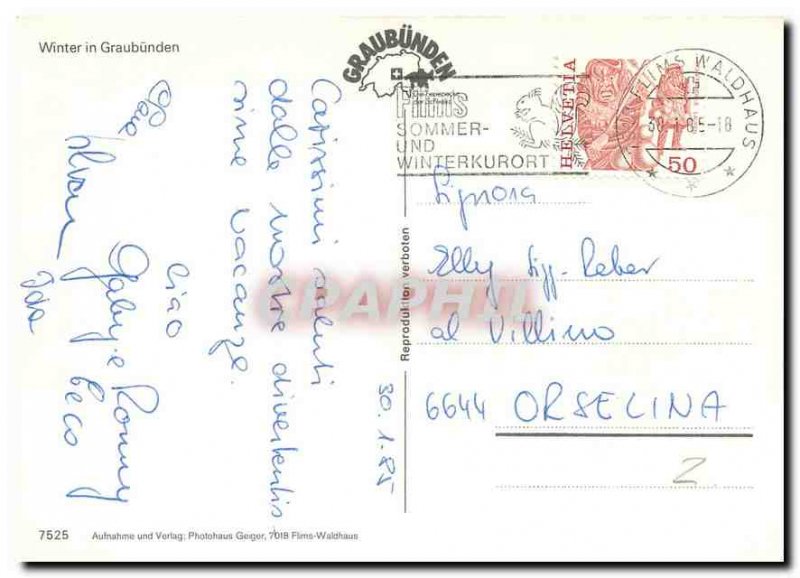 Winter in Graubünden
GRAUBÜNDEN
Flims
SOMMER-
UND
WINTERKURORT
HELVETIA
50
FLIMS WALDHAUS
30.1.85-18
Carissimi saluti
dalle nostre divertentis-
sime vacanze.
ciao
Gaby e Ronny
Ida Ceco
30.1.85
Signora
Elly Sigg-Reber
al Villino
6644 ORSELINA
Z
Reproduktion verboten
GRAPHIL
7525 Aufnahme und Verlag: Photohaus Geiger, 7018 Flims-Waldhaus